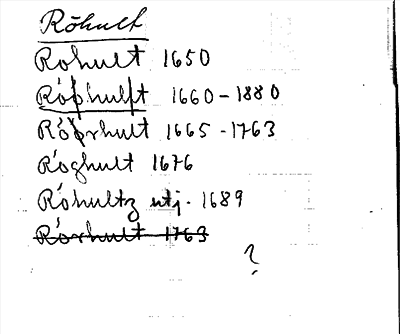 Röhult
Rohult 1650
Róphulft 1660-1880
Róorhult 1665-1763
Róghult 1676
Róhultz utj. 1689
Rórhult 1763
?